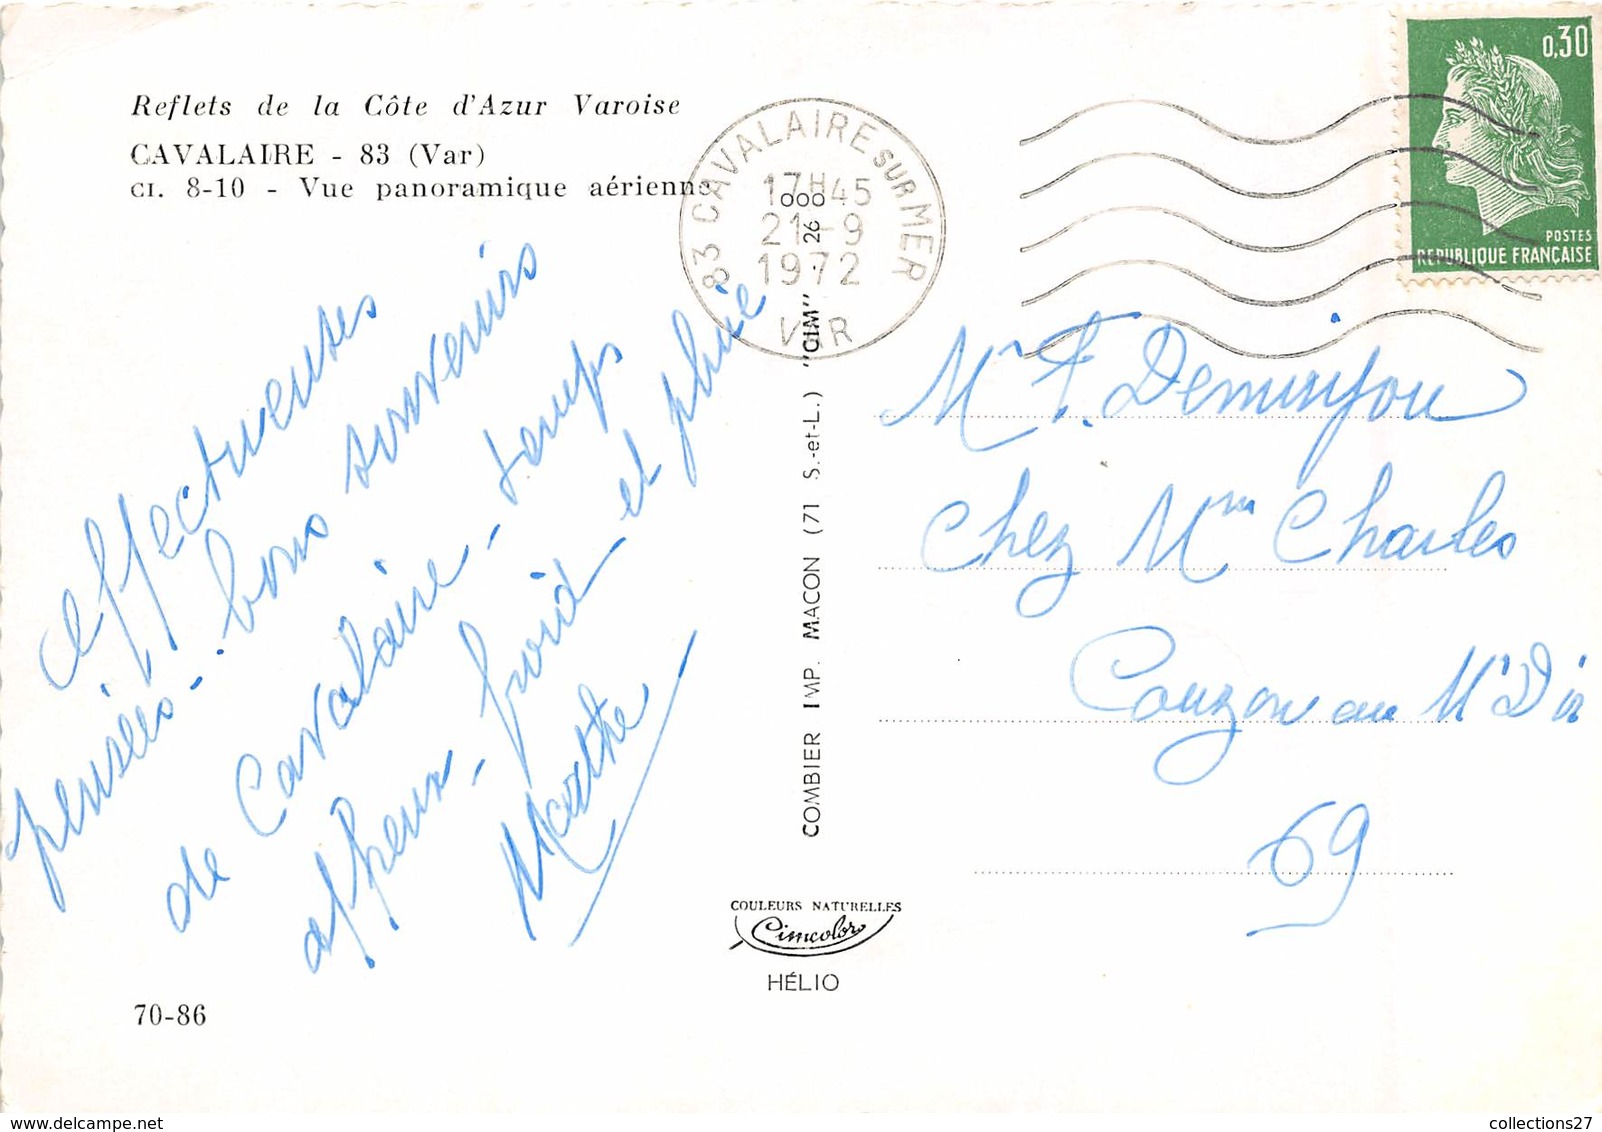 Reflets de la Côte d'Azur Varoise
CAVALAIRE - 83 (Var)
CI. 8-10 - Vue panoramique aérienne
83 CAVALAIRE SUR MER
17H45
21-9
1972
VAR
0,30
POSTES
REPUBLIQUE FRANÇAISE
affectueuses
pensées - bons souvenirs
de Cavalaire - temps
affreux - froid et pluie
Marthe
COMBIER IMP. MACON (71 S.-et-L.) "CIM"
26
000
Mr F.
Chez Mme Charles
Couzon au Mt D'or
69
COULEURS NATURELLES
Cimcolor
HÉLIO
70-86
collections27